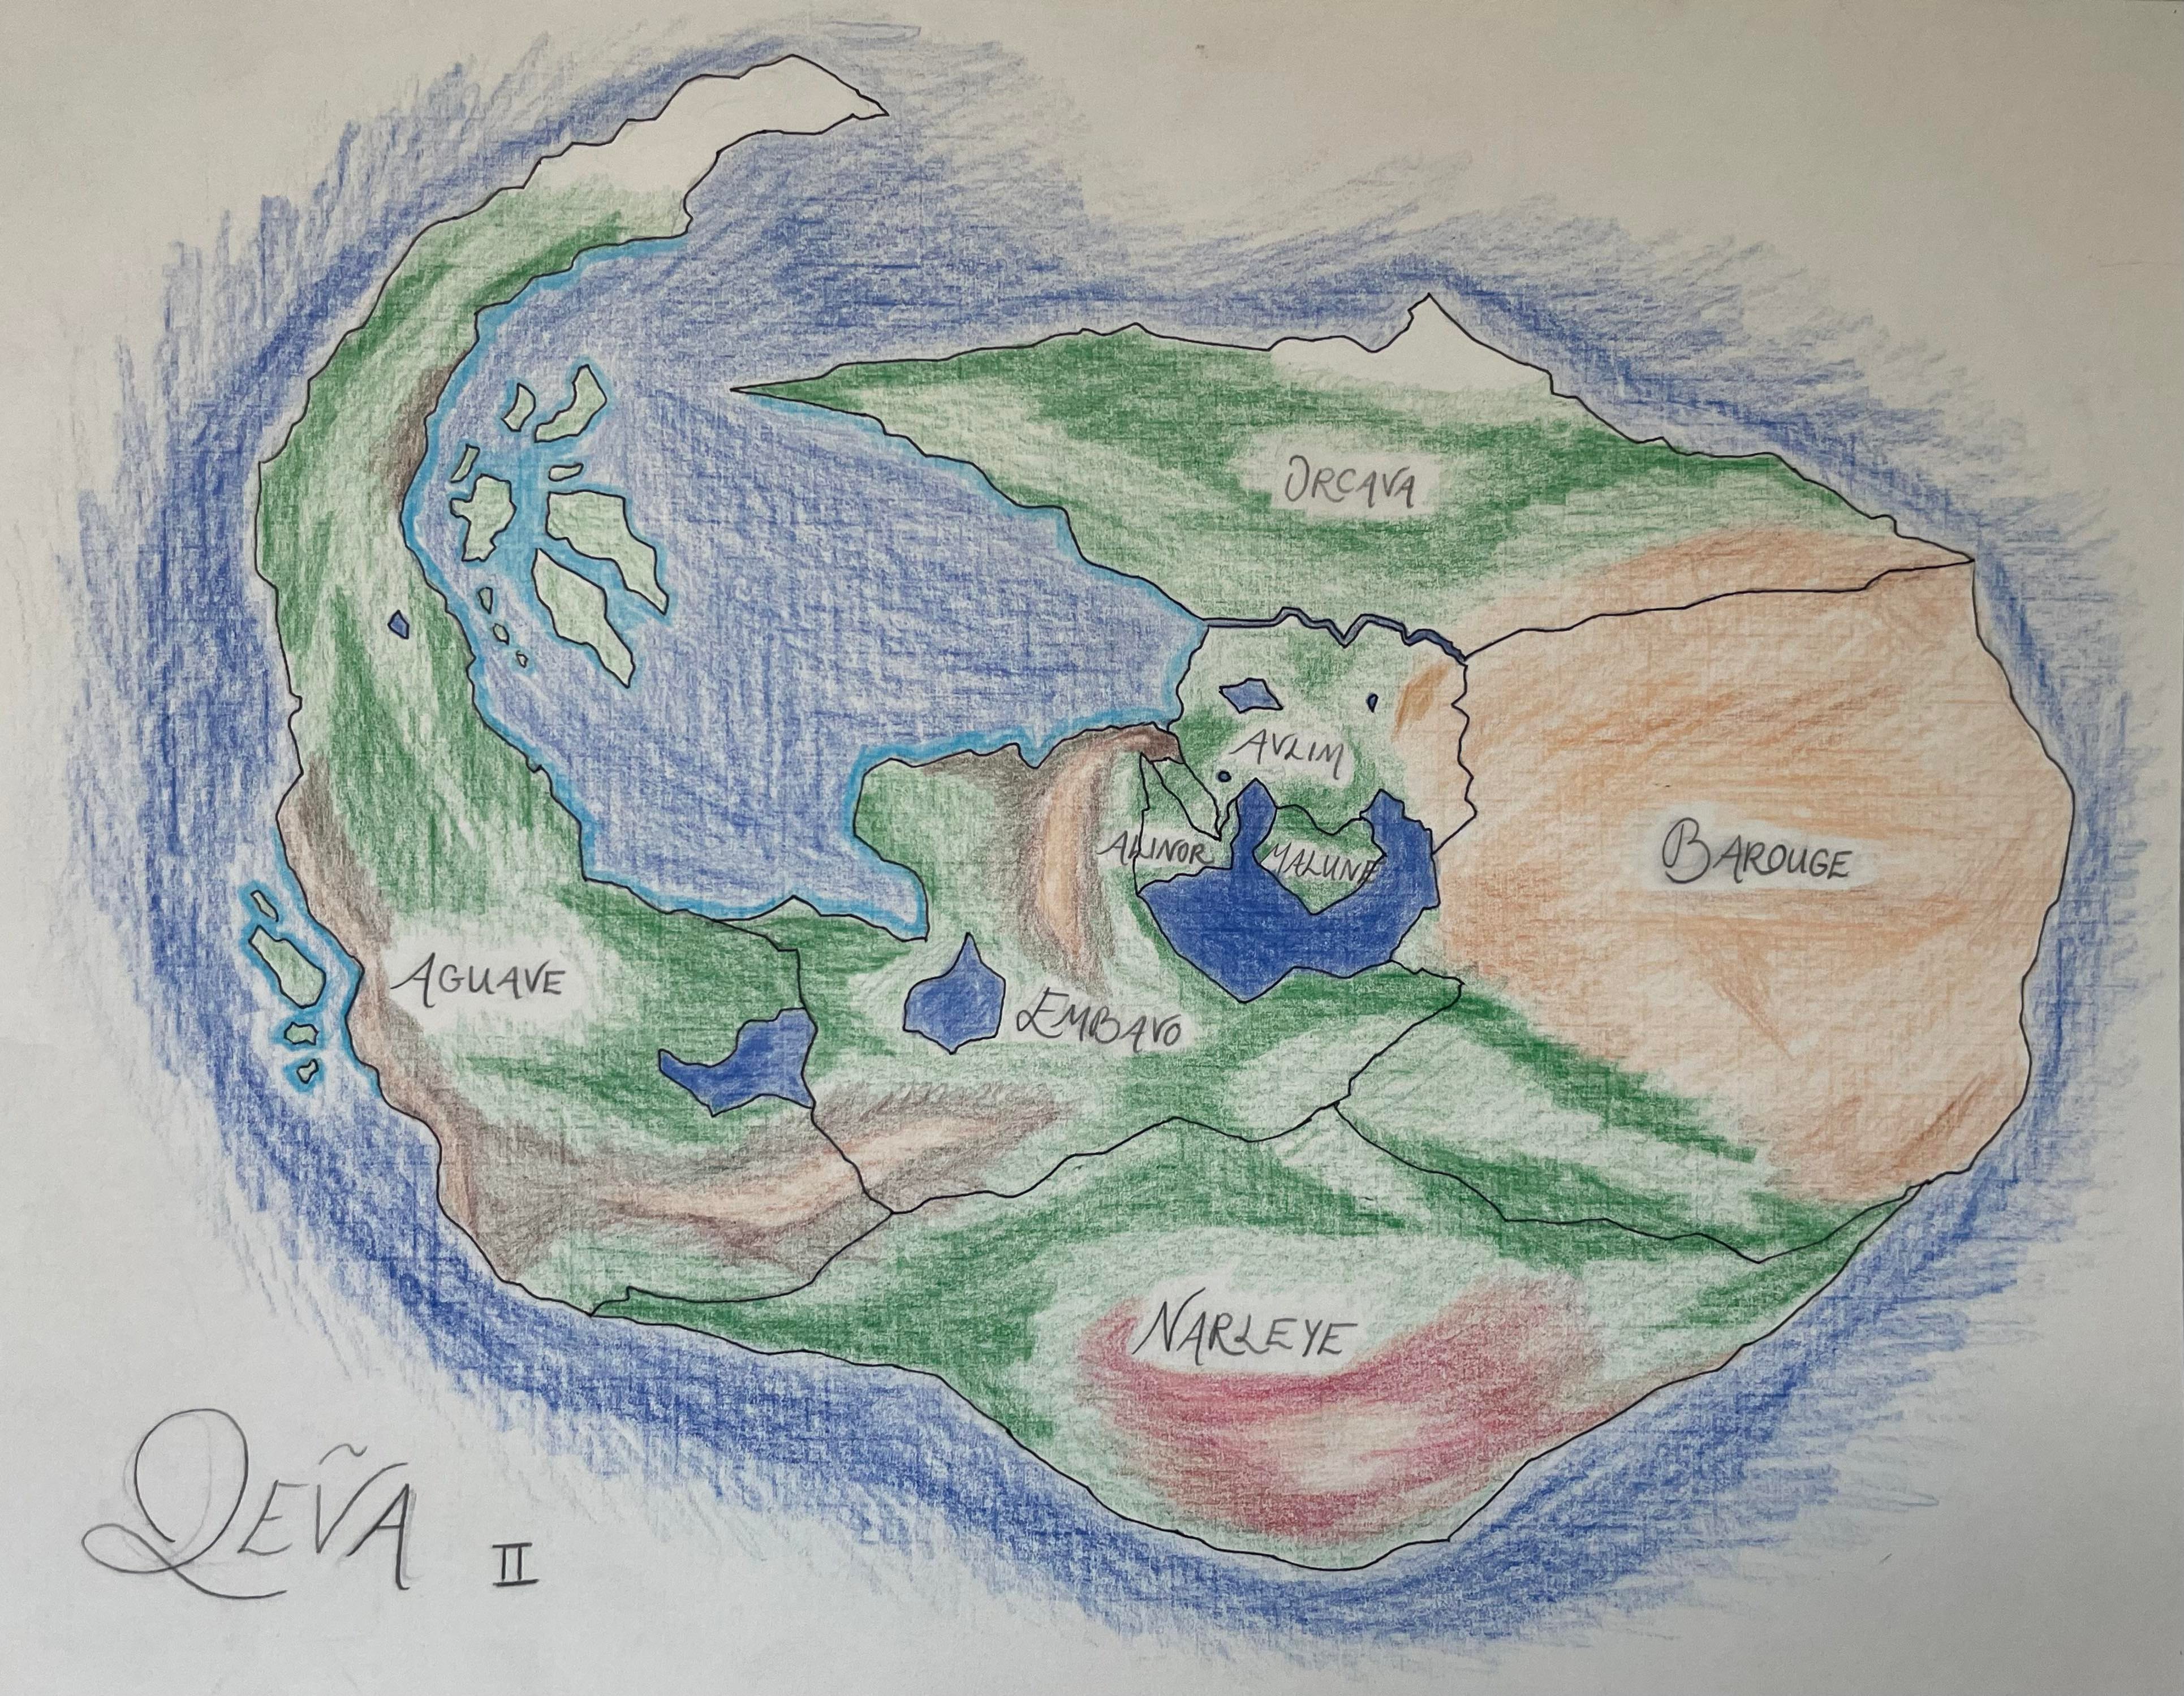 ORCAVA
AVLIM
ALINOR
MALUNE
BAROUGE
AGUAVE
EMBAVO
NARLEYE
QEÑA
II